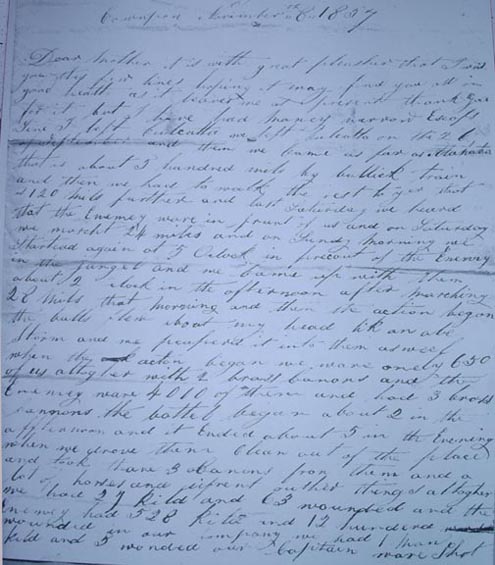 Cawnpon November 8th 1857
Dear Mother it is with great pleasher that I send
you thy few lines hoping it may find you all in
good health as it leaves me at present thank God
for it but I have had maney narrow Escaps
sene I left Calcutta we left Calcutta on the 26
and then we came as far as
that is about 3 hundred mils by bullock train
and then we had to walk the rest that
120 mils further and last Saturday we heard
that the Enemey ware in frunt of us and on Saturday
we marcht 24 miles and on Sunday morning we
Startead again at 5 Oclock in pircout of the Enemy
in the jungel and we came up with them
about 2 clock in the afternoon after marching
28 mils that morning and then the action began
the balls flew about my head lik an ale
storm and we peapered it into them as well
when the action began we ware onely 650
of us altogher with 2 brass canons and the
Enemey ware 4010 of them and had 3 brass
cannons the battel began about 2 in the
afternoon and it Ended about 5 in the Evening
when we drove them clean out of the place
and took thare 3 canons from them and a
lot of horses and difrent outher things altogher
we had 27 kild and 63 wounded and the
Enemey had 528 kild and 12 hundered
wounded in our company we had 1 man
kild and 5 wonded our Captain ware shot